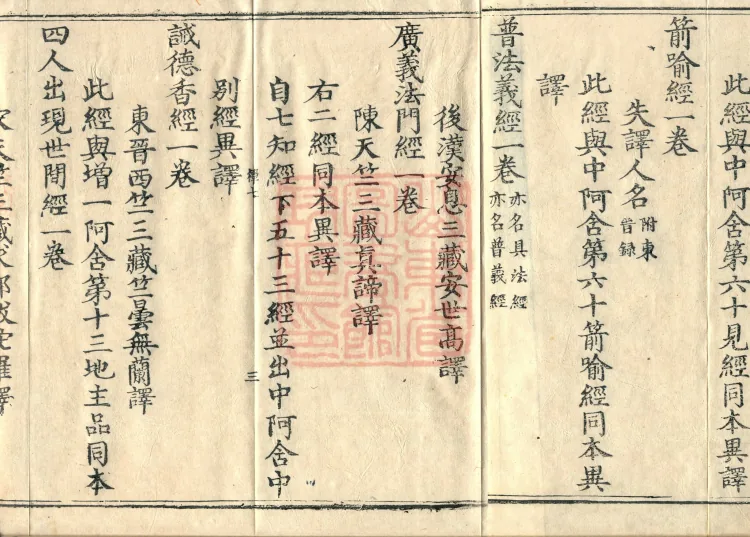 此經與中阿含第六十見經同本異譯
箭喻經一卷
失譯人名附東晉録
此經與中阿含第六十箭喻經同本異
譯
普法義經一卷亦名具法經亦名普義經
後漢安息三藏安世高譯
廣義法門經一卷
陳天竺三藏真諦譯
右二經同本異譯
自七知經下五十三經並出中阿含中
別經異譯
三
誡德香經一卷
東晉西竺三藏竺曇無蘭譯
此經與增一阿含第十三地主品同本
四人出現世間經一卷
宋天竺三藏求那跋陀羅譯